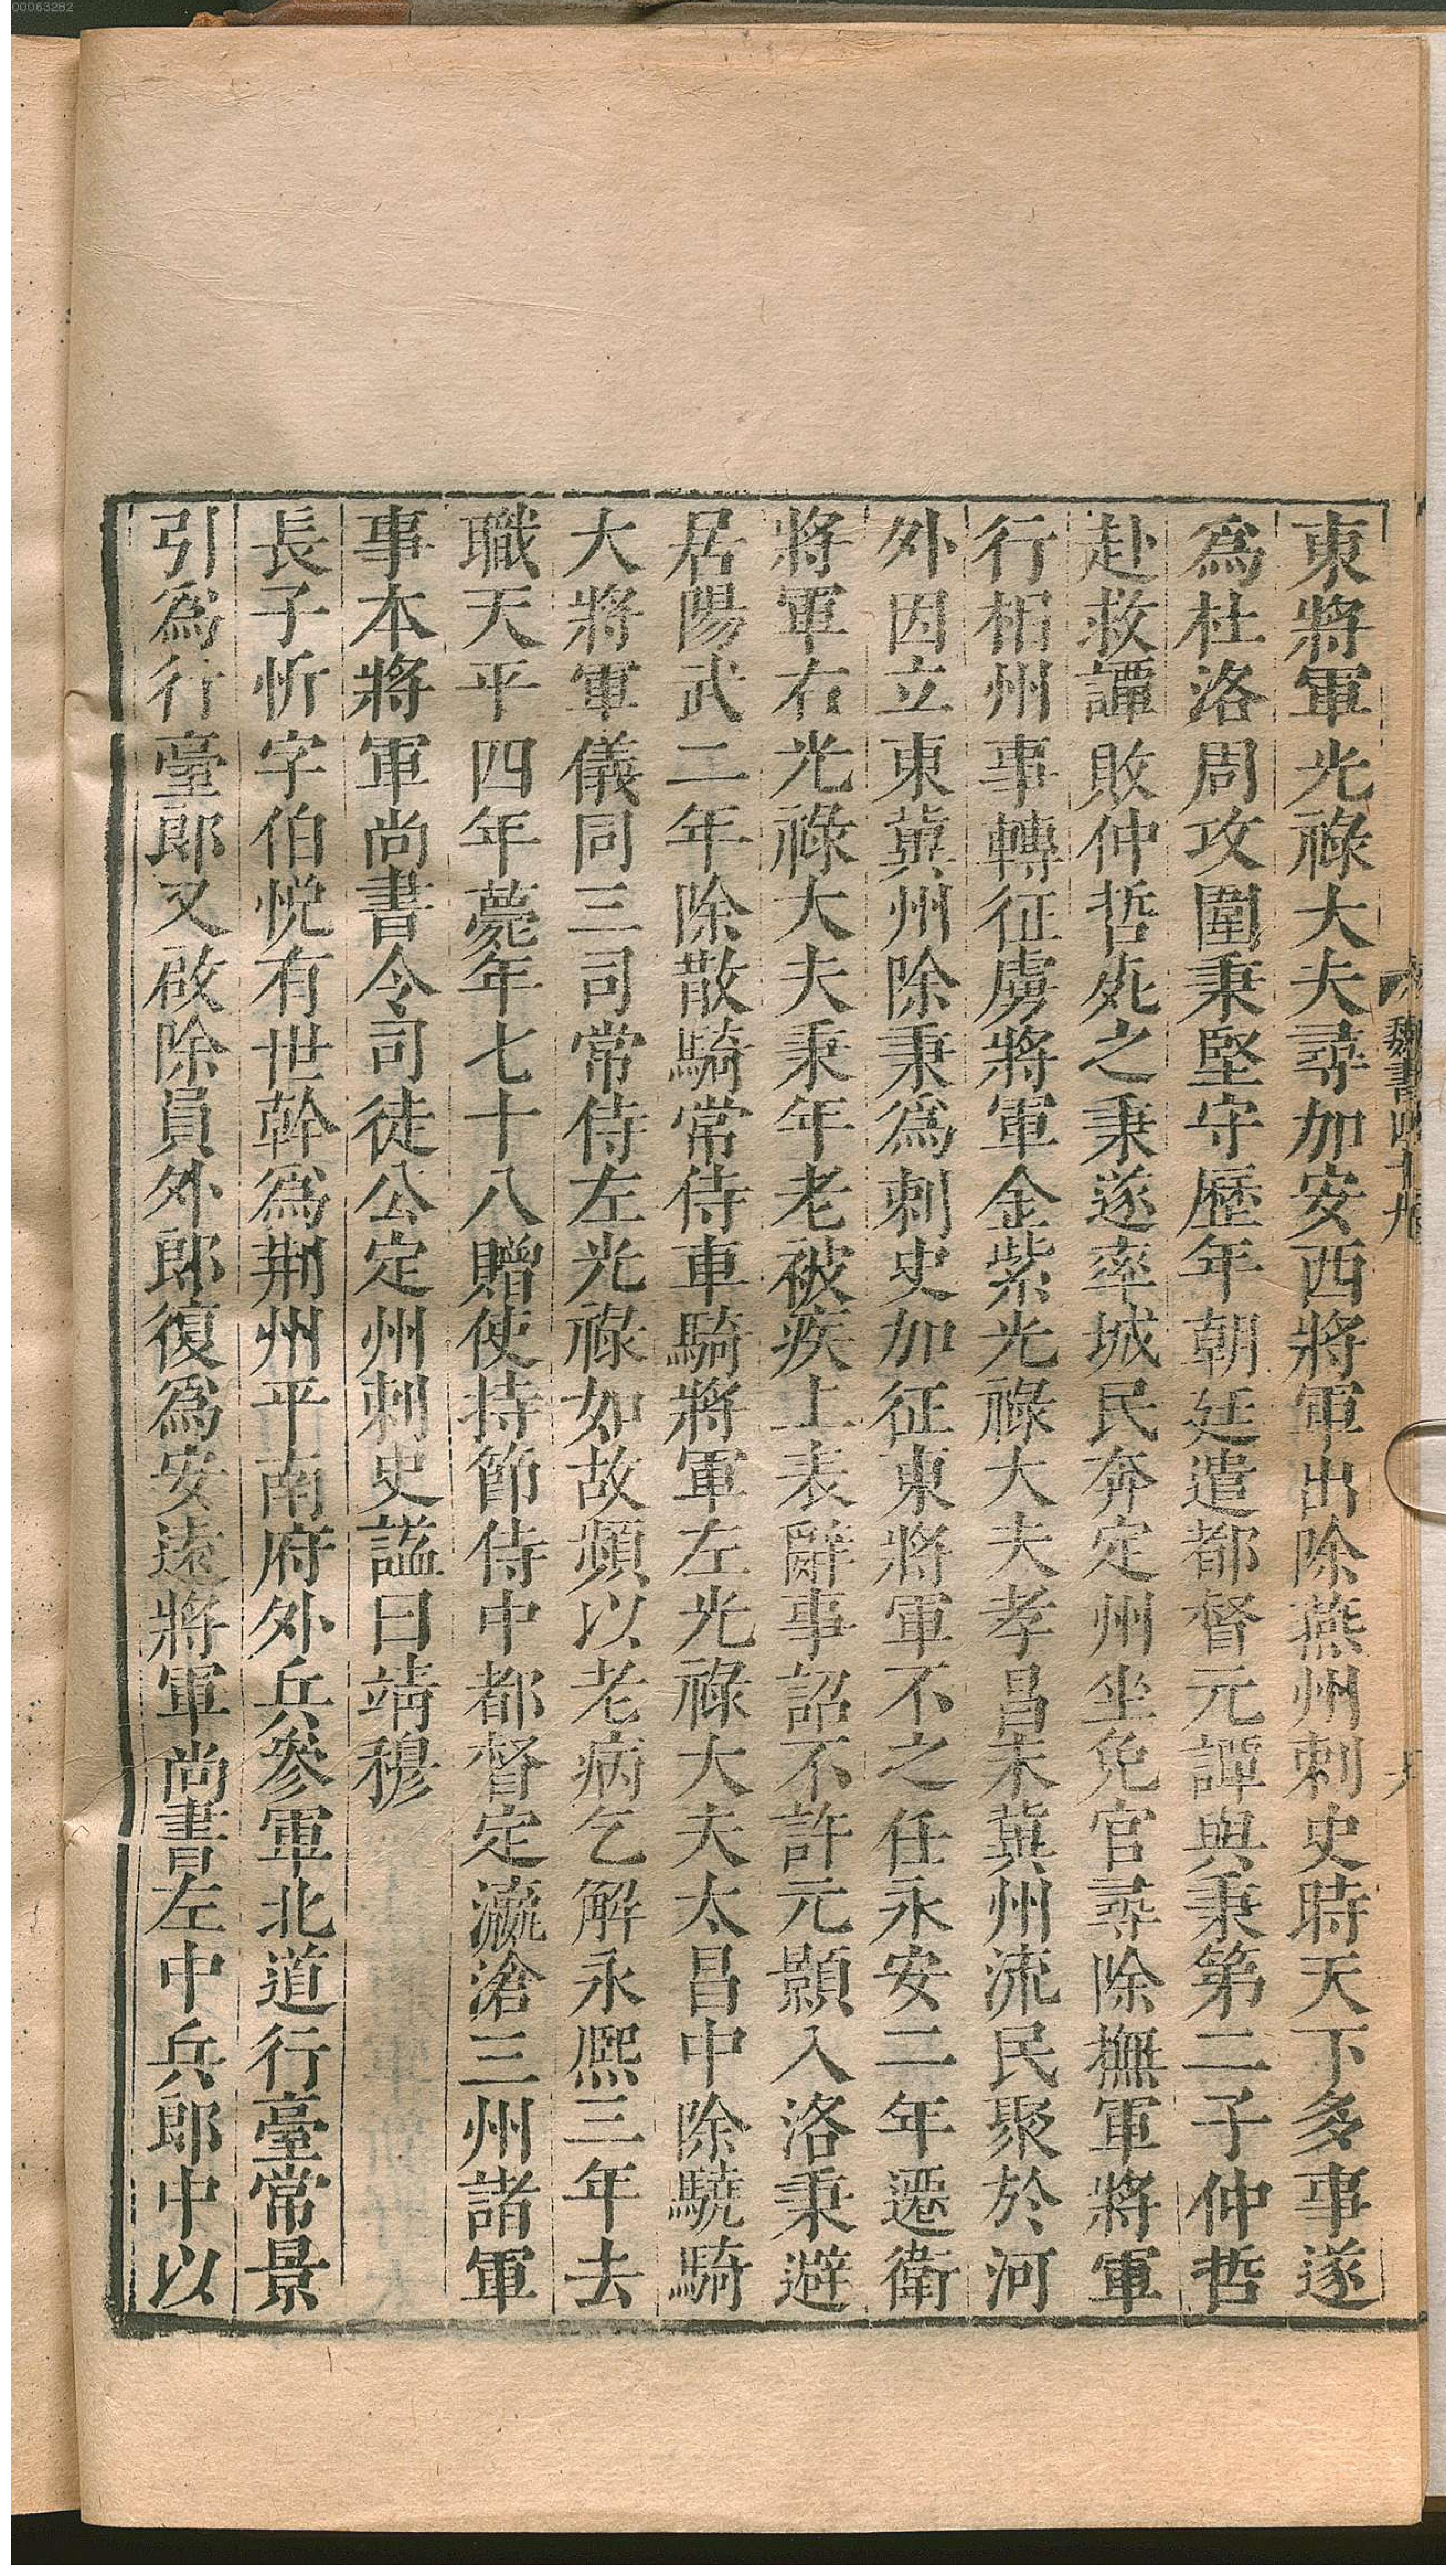 00063282
魏書四十九
東將軍光祿大夫尋加安西將軍出除燕州刺史時天下多事遂
爲杜洛周攻圍秉堅守歷年朝廷遣都督元譚與秉第二子仲哲
赴救譚敗仲哲死之秉遂率城民奔定州坐免官尋除撫軍將軍
行相州事轉征虜將軍金紫光祿大夫孝昌末冀州流民聚於河
外因立東冀州除秉爲刺史加征東將軍不之任永安二年遷衛
將軍右光祿大夫秉年老被疾上表辭事詔不許元顥入洛秉避
居陽武二年除散騎常侍車騎將軍左光祿大夫太昌中除驍騎
大將軍儀同三司常侍左光祿如故頻以老病乞解永熙三年去
職天平四年薨年七十八贈使持節侍中都督定瀛滄三州諸軍
事本將軍尚書令司徒公定州刺史謚曰靖穆
長子忻字伯悅有世幹爲荆州平南府外兵參軍北道行臺常景
引爲行臺郎又啟除員外郎復爲安遠將軍尚書左中兵郎中以